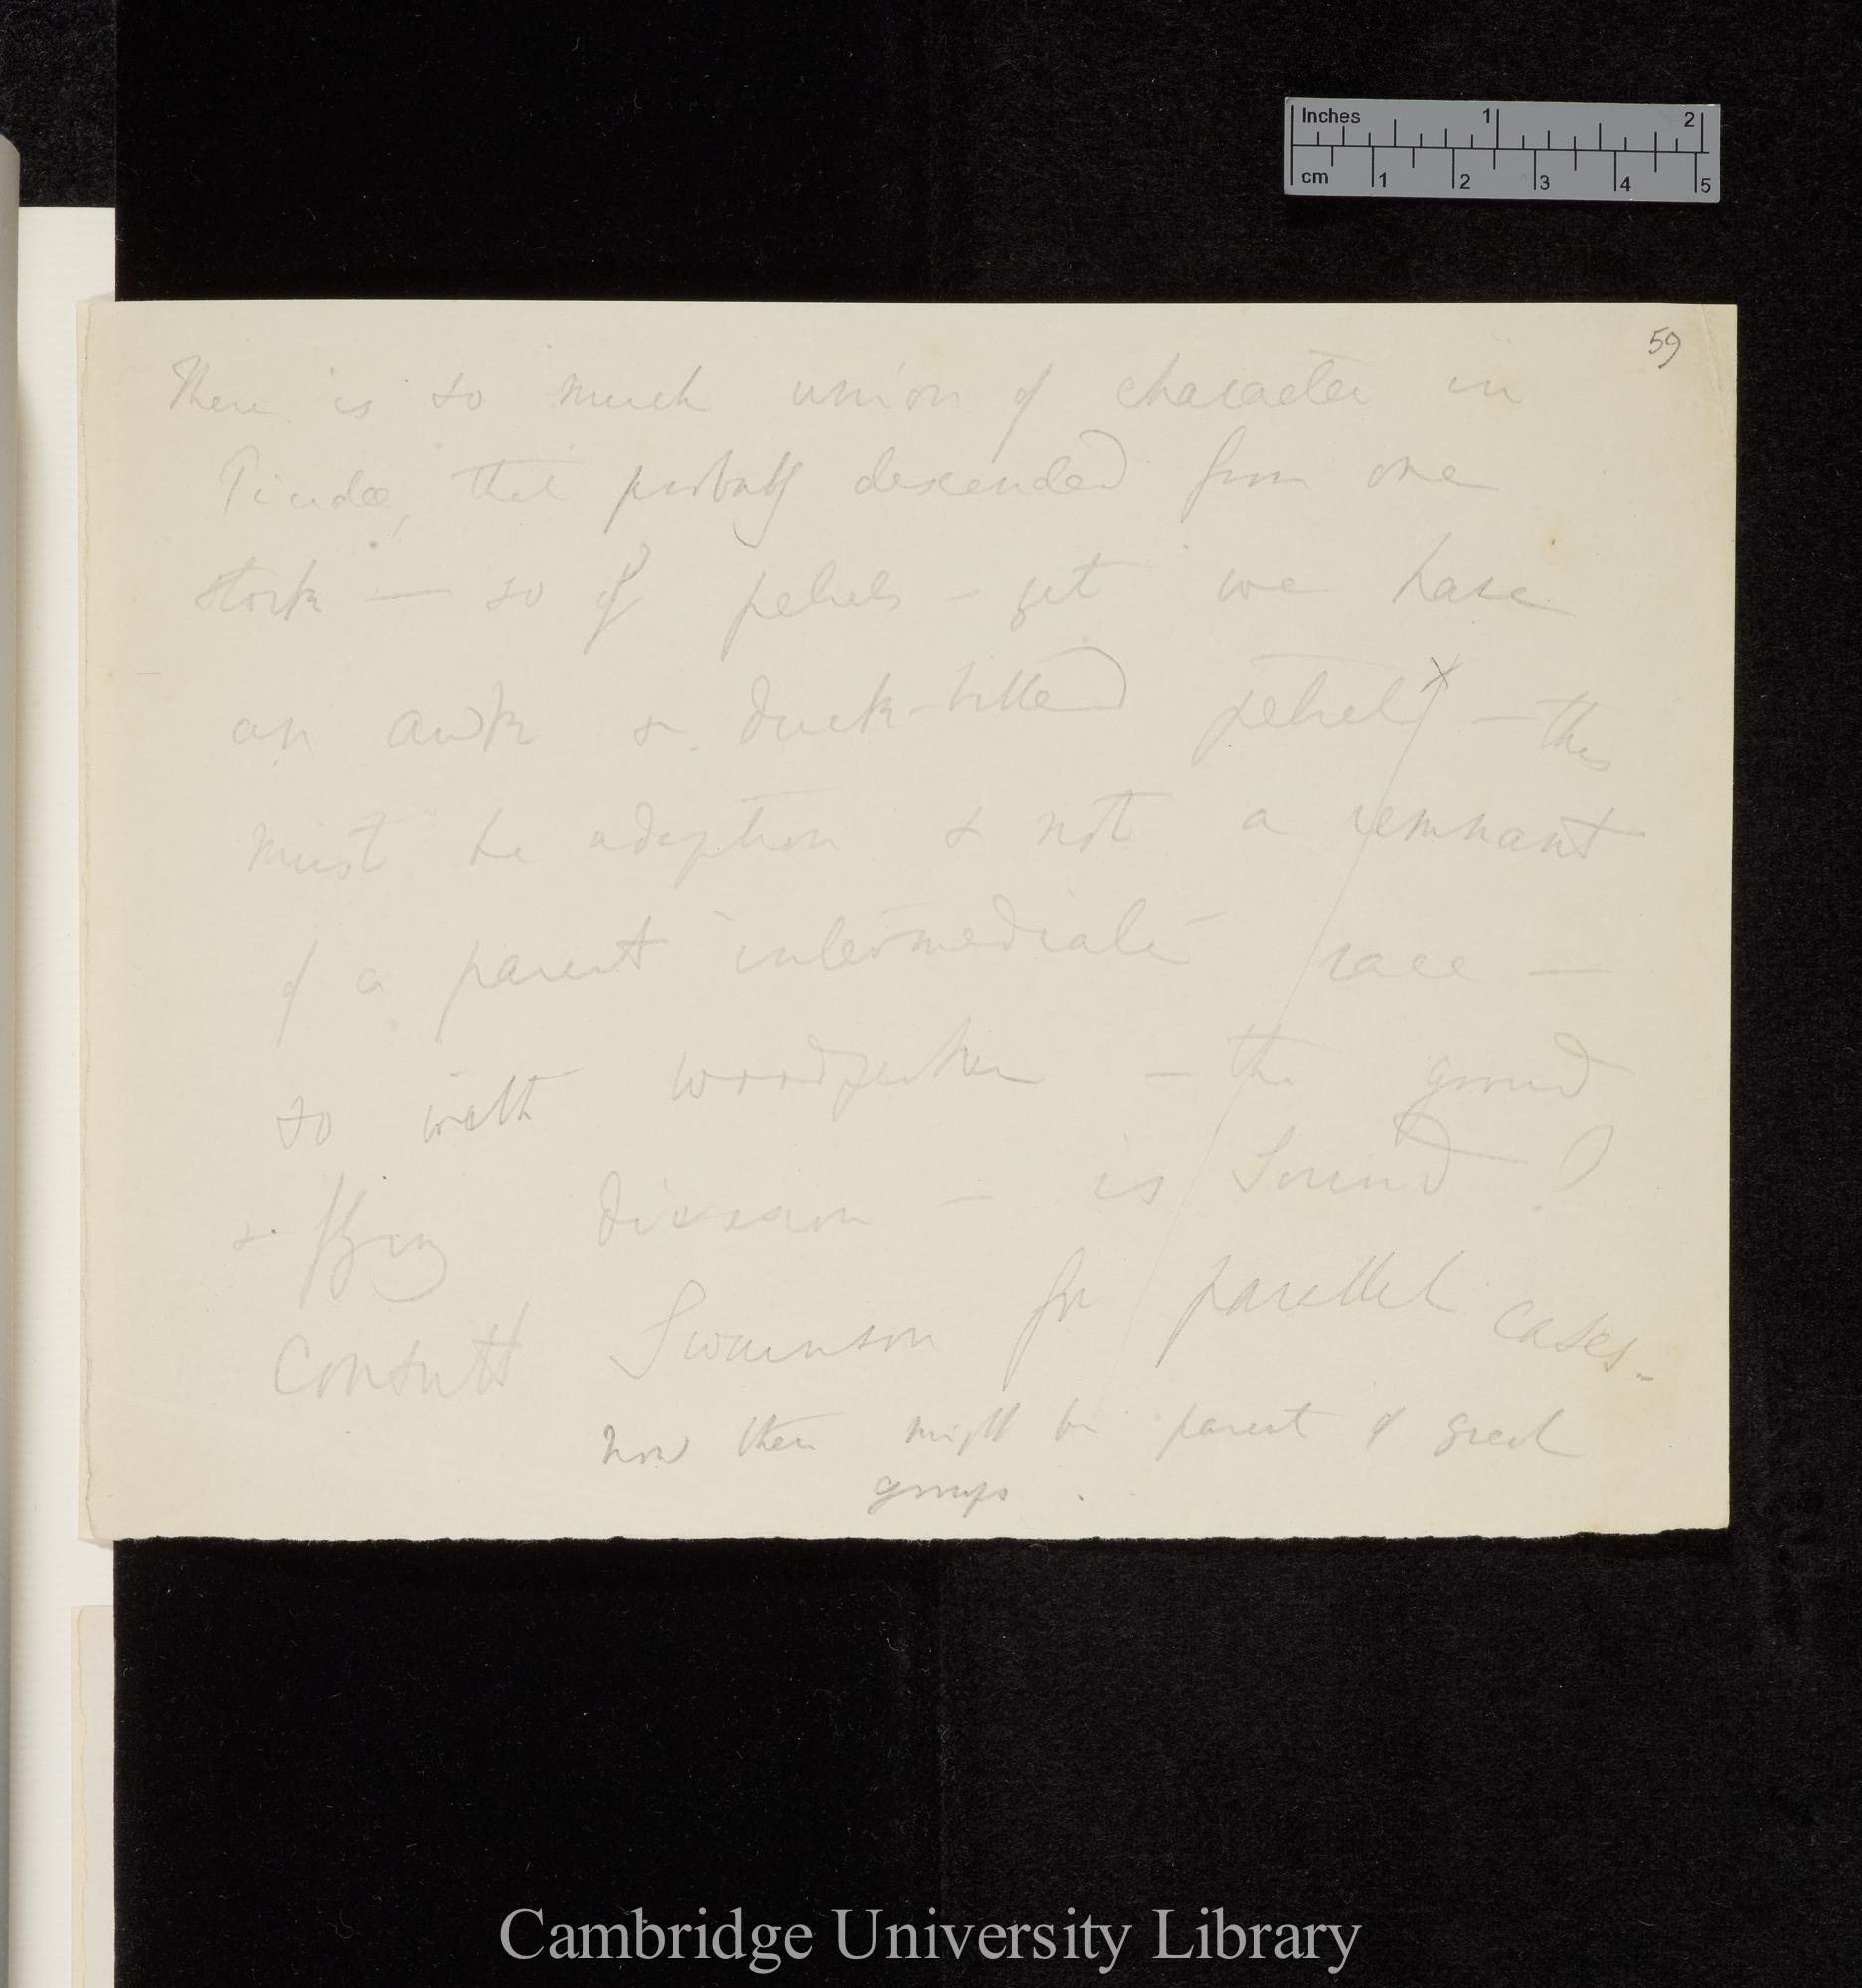 Inches 1 2
cm 1 2 3 4 5
59
There is so much union of character in
Picidæ, that probably descended from one
stock — so of petrels — yet we have
an awk & duck-billed petrel x — this
must be adaption & not a remnant
of a parent intermediate race —
so with woodpecker — the ground
& flying division — is sound ?
Consult Swainson for parallel cases.—
how then might be parent of great
groups .
Cambridge University Library